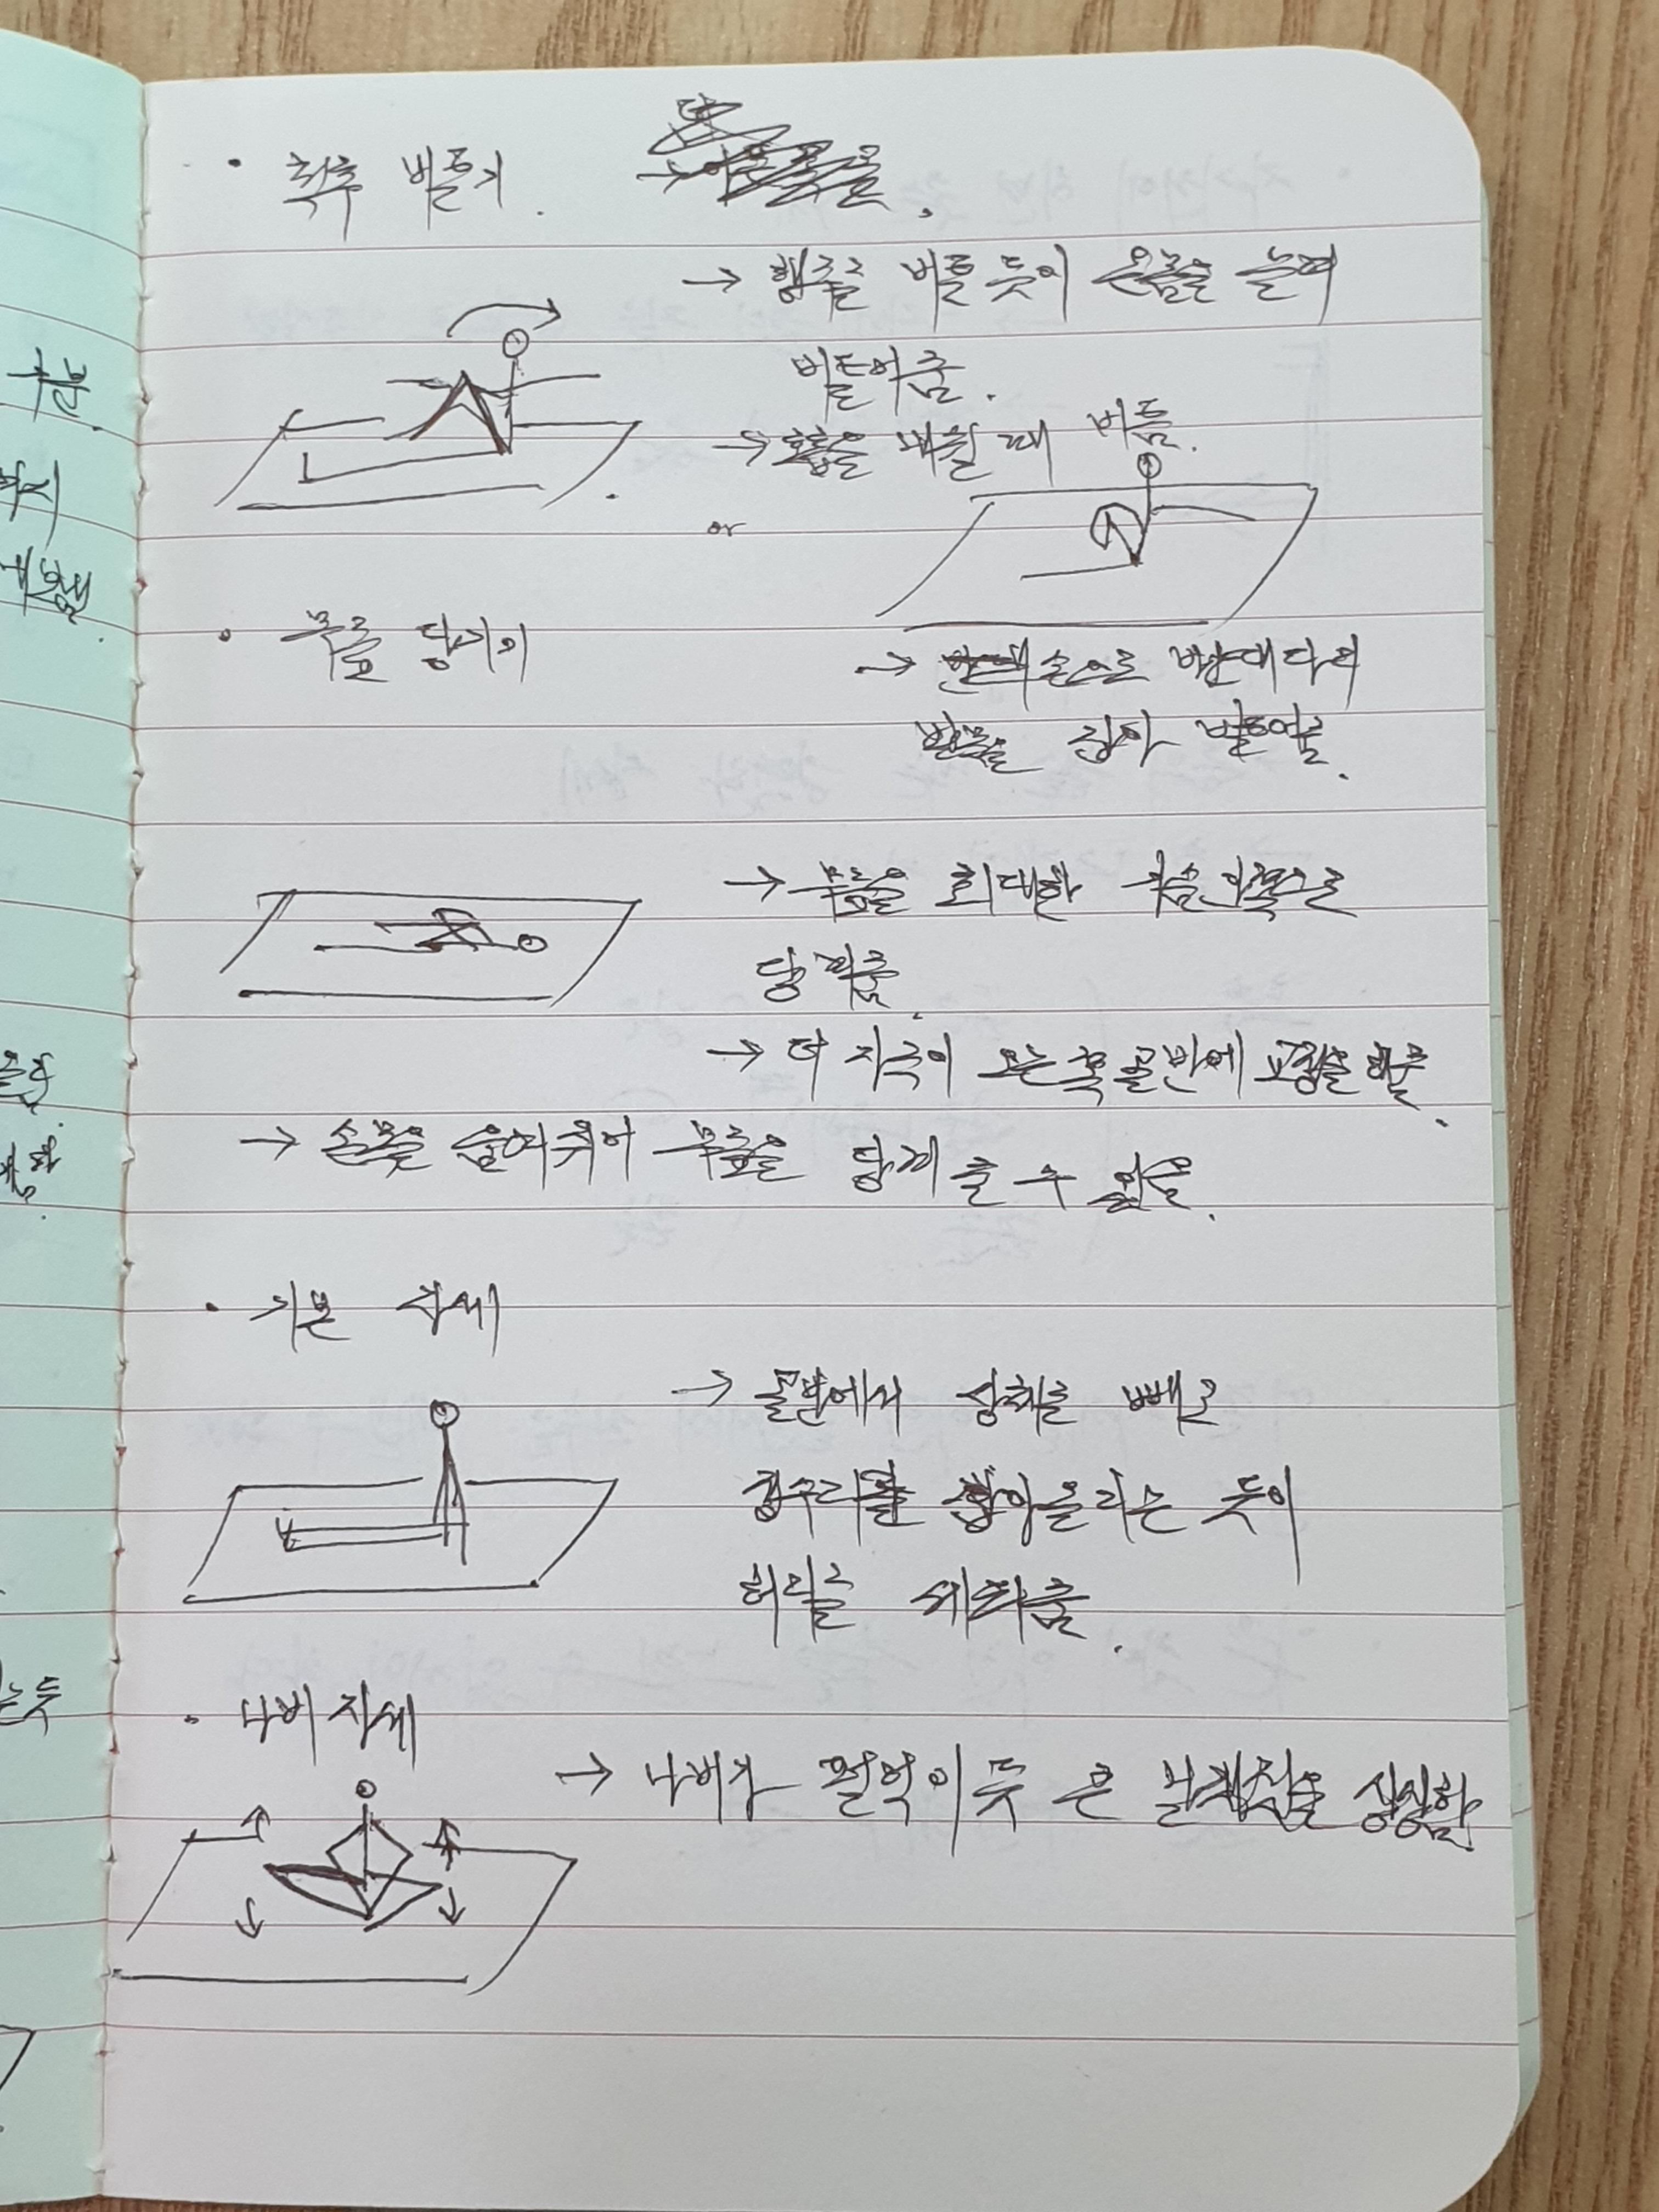 · 척추 비틀기.
→ 행주를 비틀 듯이 온몸을 눌며
비틀어줌.
→ 호흡을 내쉴 때 비틈.
or
· 무릎 당기기
→ 손으로 반대다리
발목을 잡아 비틀어줌.
→ 무릎을 최대한 가슴안쪽으로
당겨줌.
→ 더 자극이 오는쪽 골반에 교정을 해줌.
→ 손목을 움켜쥐어 무릎을 당겨 줄 수 있음.
· 기본 자세
→ 골반에서 상체를 빼고
갈구리를 잡아올리는 듯이
허리를 세워줌.
· 나비 자세
→ 나비가 펄럭이듯 큰 날갯짓을 상상함